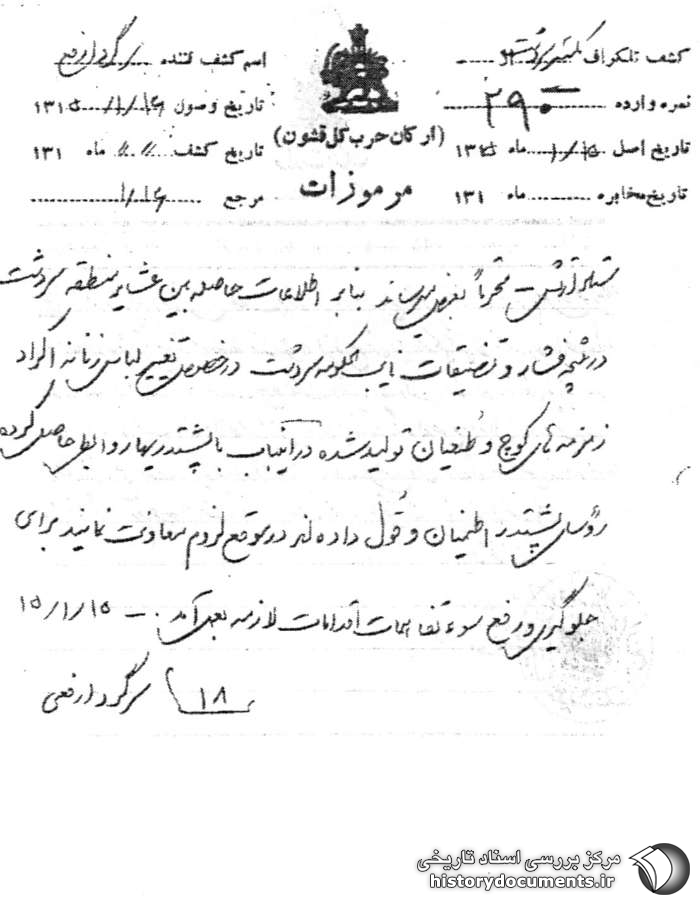 کشف تلگراف
اسم کشف کننده سرگرد ارفعی
نمره وارده ۲۹۰
تاریخ وصول ۱۶/۱/۱۳۱۵
(ارکان حرب کل قشون)
تاریخ اصل ۱۵/۱ ماه ۱۳۱۵
تاریخ کشف " " ماه ۱۳۱
مرموزات
تاریخ مخابره ماه ۱۳۱
مرجع ۱۶/۱
محترماً بعرض میرساند بنابر اطلاعات حاصله بین عشایر منطقه سردشت
در نتیجه فشار و تضییقات نایب الحکومه سردشت در خصوص تغییر لباس زنانه اکراد
زمزمه های کوچ و طغیان تولید شده در اینباب با پشتدریها روابطی حاصل کرده
رؤسای پشتدر اطمینان و قول داده اند در موقع لزوم معاونت نمایند برای
جلوگیری و رفع سوء تفاهمات اقدامات لازمه بعمل آمد . – ۱۵/۱/۱۵
۱۸ سرگرد ارفعی
مرکز بررسی اسناد تاریخی
historydocuments.ir